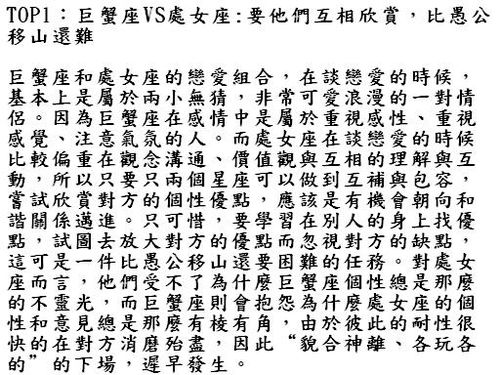 TOP1：巨蟹座VS處女座:要他們互相欣賞，比愚公
移山還難
巨蟹座和處女座的戀愛組合，在談戀愛的時候，
基本上是屬於兩小無猜，非常可愛浪漫的一對情
侶。因為巨蟹座在感情中是屬於重視感性、重視
感覺、注意氣氛的人。而處女座在談戀愛的時候
比較偏重在觀念溝通、價值觀與互相的理解與互
動，所以只要只兩個星座可以做到互補與包容，
嘗試欣賞對方的個性優點，應該是有機會朝向和
諧關係邁進。只可惜，要學習在別人的身上找優
點，試圖去放大對方的優點而忽視對方的缺點，
這可是一件比愚公移山還要困難的任務。對處女
座而言，他們受不了為什麼巨蟹座個性總是那麼
的不靈光，而巨蟹座則會抱怨為什麼處女座的個
性和意見總是那麼有棱有角，由於彼此的耐性很
快的在對方消磨殆盡，因此“貌合神離、各玩各
的”的下場，遲早發生。